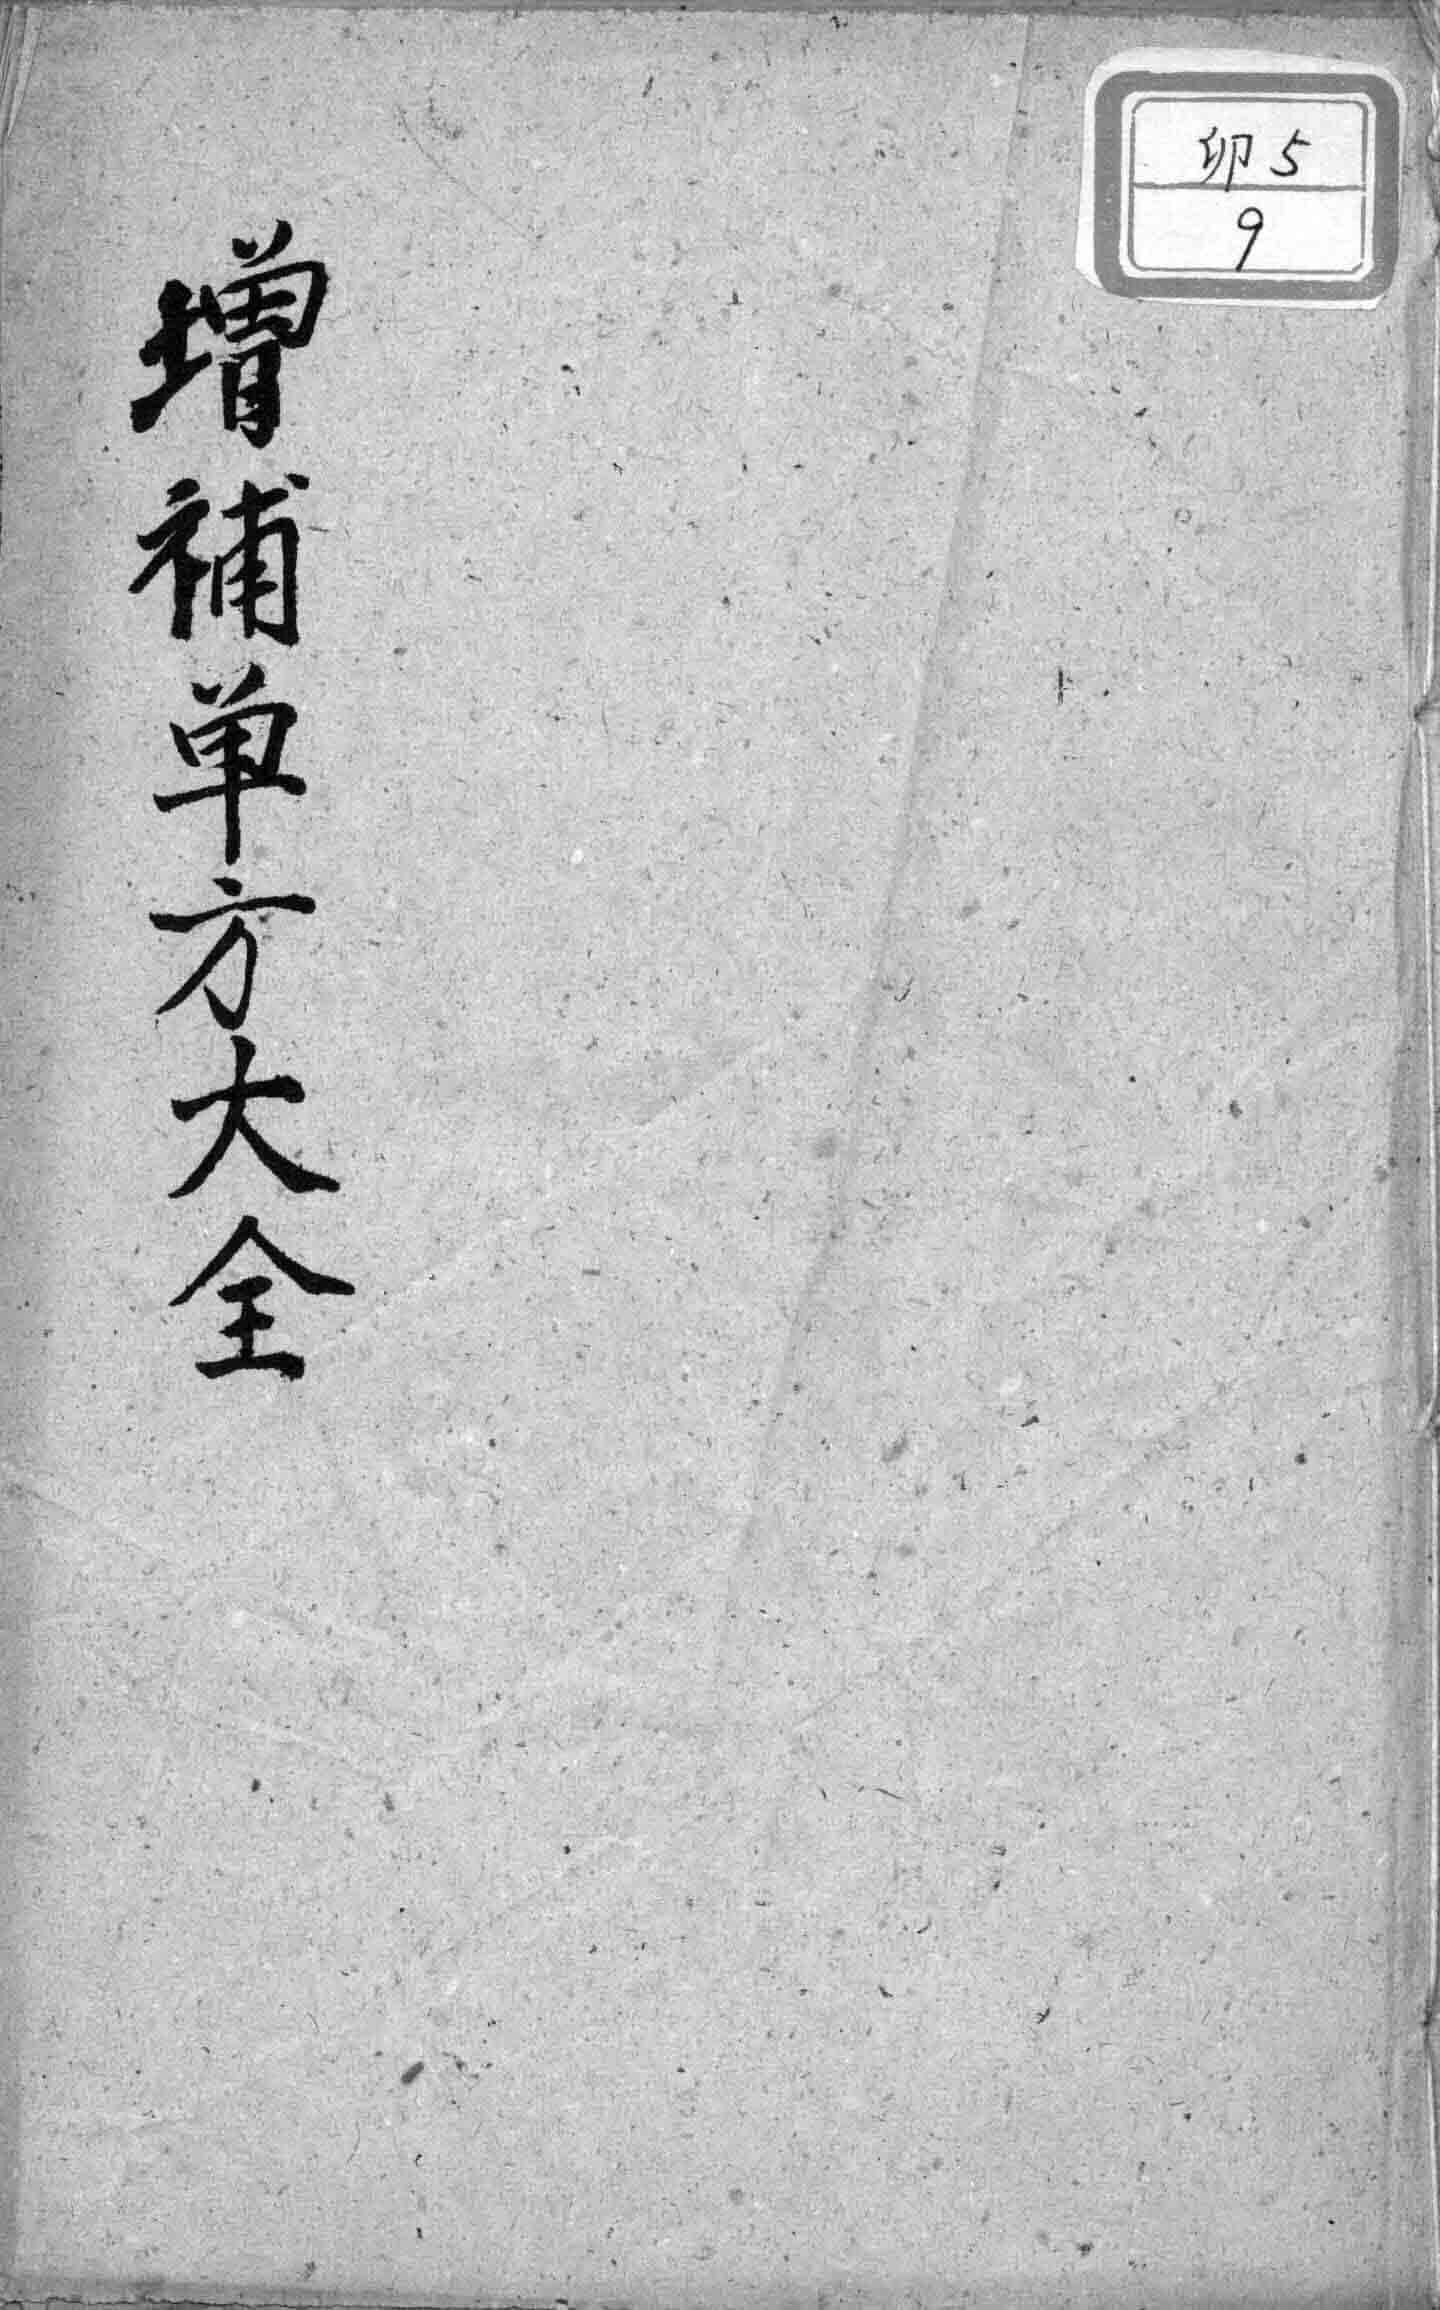 卯5
9
增補单方大全